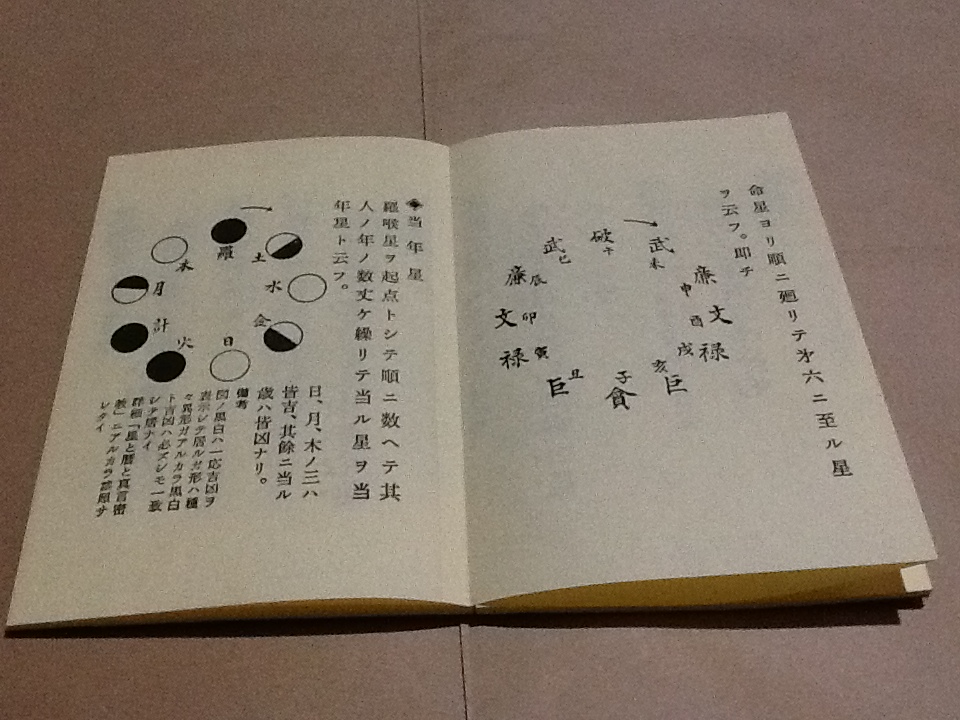 命星ヨリ順ニ廻リテ第六ニ至ル星
ヲ云フ。即チ
破 午
武 未
廉 申
文 酉
禄 戌
巨 亥
貪 子
巨 丑
禄 寅
文 卯
廉 辰
武 巳
当年星
羅喉星ヲ起点トシテ順ニ数ヘテ其
人ノ年ノ数丈ケ繰リテ当ル星ヲ当
年星ト云フ。
羅
土
水
金
日
火
計
月
木
日、月、木ノ三ハ
皆吉、其餘ニ当ル
歳ハ皆凶ナリ。
備考
図ノ黒白ハ一応吉凶ヲ
表示シテ居ルガ形ハ種
々異形ガアルカラ黒白
ト吉凶ハ必ズシモ一致
シテ居ナイ
詳細「星と暦と真言密
教」ニアルカラ参照サ
レタイ